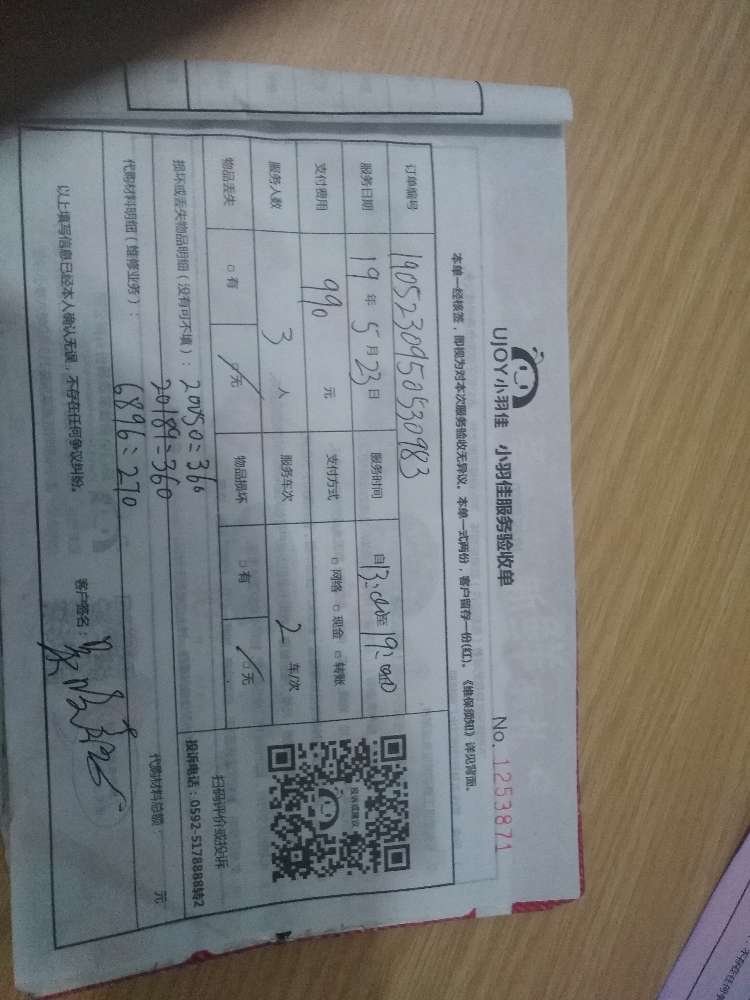 UJOY小羽佳 小羽佳服务验收单 No. 1253871
本单一经核签，即视为对本次服务验收无异议。本单一式两份，客户留存一份(红)。《维保须知》详见背面。
订单编号 190523095053098​3
服务日期 19 年 5 月 23 日 服务时间 自13:00至19:00
支付费用 990 元 支付方式 □ 网络 □ 现金 □ 转账
服务人数 3 人 服务车次 2 车/次
物品丢失 □ 有 □ 无 物品损坏 □ 有 □ 无
投诉或建议
扫码评价或投诉
投诉电话：0592-5178888转2
损坏或丢失物品明细（没有可不填）： 20050=360
20189=360
代购材料明细（维修业务）： 6896=270
代购材料总额： 元
以上填写信息已经本人确认无误，不存在任何争议纠纷。 客户签名：